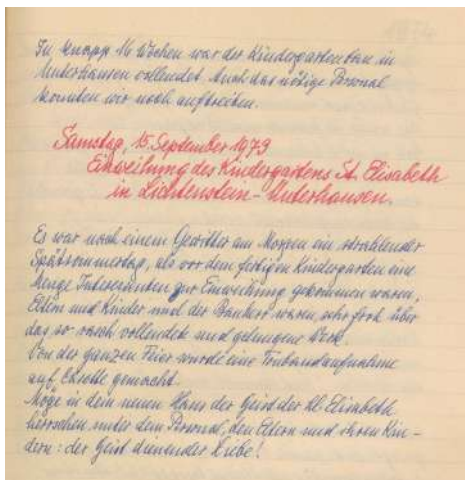 In knapp 16 Wochen war der Kindergartenbau in
Unterhausen vollendet. Auch das nötige Personal
konnten wir noch auftreiben.
Samstag, 15. September 1973
Einweihung des Kindergartens St. Elisabeth
in Lichtenstein-Unterhausen.
Es war nach einem Gewitter am Morgen ein strahlender
Spätsommertag, als vor dem fertigen Kindergarten eine
Menge Interessenten zur Einweihung gekommen waren,
Eltern und Kinder und der Bauherr waren sehr froh über
das so rasch vollendete und gelungene Werk.
Von der ganzen Feier wurde eine Tonbandaufnahme
auf Cassette gemacht.
Möge in dem neuen Haus der Geist der hl. Elisabeth
herrschen unter dem Personal, den Eltern und ihren Kin-
dern: der Geist dienender Liebe!